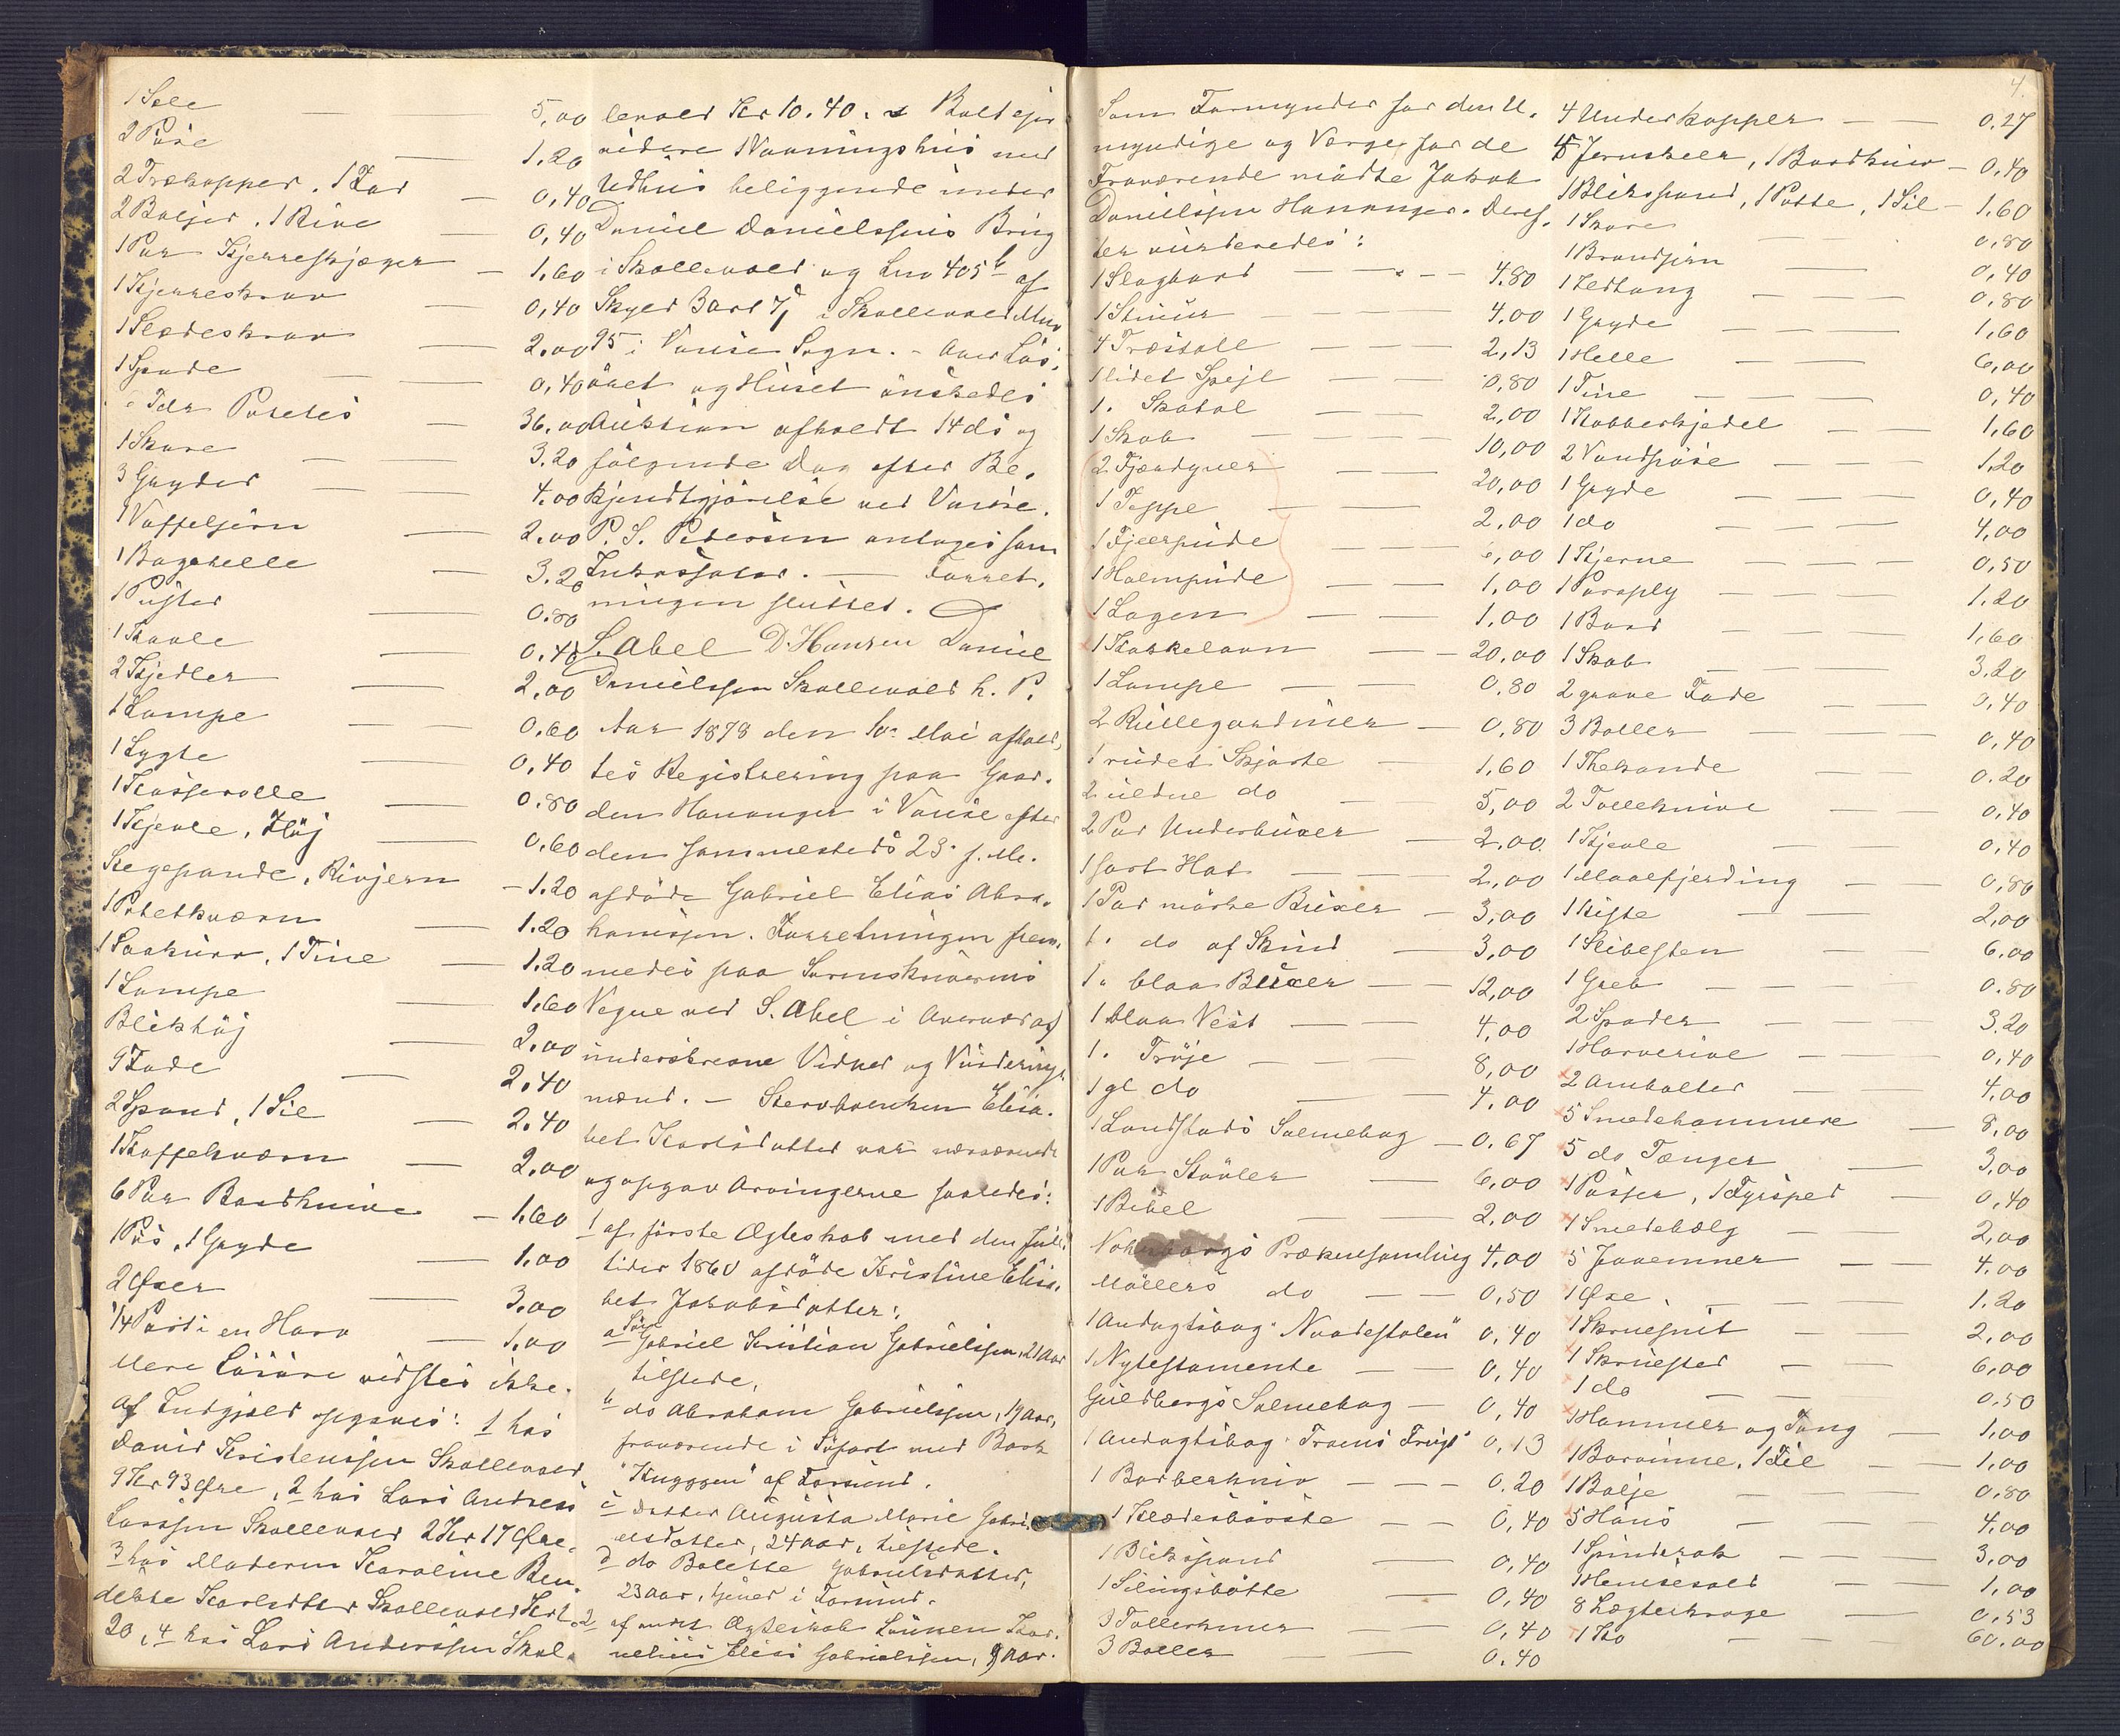 1 Sele — 5,00
2 Pöse — 1.20
2 Træekopper, 1 Kar — 0,40
2 Baljer, 1 Rive — 0,40
1 Par Kjerreskjæger — 1,60
1 Kjerreskrav — 0,40
1 Slædeskrav — 2,00
1 Spade — 0,40
Tdr Potetes — 36,00
1 Skare — 3.20
3 Gryder — 4.00
1 Vaffeljern — 2.00
1 Bagehelle — 3.20
1 Puster — 0.80
1 Kavle — 0.40
2 Kjedler — 2,00
1 Lampe — 0,60
1 Lygte — 0,40
1 Kasserolle — 0.80
1 Kjevle, Höj — 0,60
Stegepande, Rivjern — 1.20
1 Potetkværn — 1.20
1 Saakurv, 1 Tine — 1.20
1 Lampe — 1,60
Bliktöj — 2.00
9 Fade — 2,40
2 Spand, 1 Sil — 2.40
1 Kaffekværn — 2,00
6 Par Bordknive — 1,60
1 Pös, 1 Gryde — 1,00
2 Öxer — 3,00
1/4 Part i en Harv — 1,00
Mere Lösöre vidstes ikke.
Af Indgjæld opgaves: 1 hos
David Kristenssen Skollevold
9 Kr 93 Öre, 2 hos Lars Andreas
Larssen Skollevold 2 Kr 17 Öre.
3 hos Moderen Karoline Ben-
dikte Karlsdtter Skollevold Kr 1.
20, 4 hos Lars Anderssen Skol-
levold Kr 10.40. Boet ejer
videre 1 Vaaningshus med
Udhus beliggende under
Daniel Danielssens Brug
i Skollevold og Lno 405 b af
Skyld 3 ort 7 β i Skollevold Mno
95 i Vanse Sogn. – Over Lös-
öret og Huset önskedes
Auktion afholdt 14 ds og
fölgende Dag efter Be-
kjendtgjörelse ved Vanse.
P. S. Pedersen antages som
Inkassator. — Forret-
ningen sluttet.
S. Abel D. Hansen Daniel
Danielssen Skollevold h. P.
Aar 1878 den 10 Mai afhold-
tes Registrering paa Gaar-
den Hananger i Vanse efter
den sammesteds 23 f. M.
afdöde Gabriel Elias Abra-
hamssen. Forretningen frem-
medes paa Lensmandens
Vegne ved S. Abel i Overvær af
underskrevne Vidner og Vurderings
mænd. – Stervboenken Elisa-
bet Karlsdatter var nærværende
og opgav Arvingerne saaledes:
1 af förste Ægteskab med den Jule-
tider 1860 afdöde Kristine Elisa-
bet Jakobsdatter:
a Sön Gabriel Kristian Gabrielssen, 21 Aar
tilstede,
b do Abraham Gabrielssen, 19 Aar,
fraværende i Söfart med Bark
"Kuggen" af Farsund.
c Datter Augusta Marie Gabri-
elsdatter, 24 Aar, tilstede.
d do Bolette Gabrielsdatter,
23 Aar, tjener i Farsund.
2 af andet Ægteskab Sönnen Kor-
nelius Elias Gabrielssen, 9 Aar.
Som Formynder for den U-
myndige og Værge for de
Fraværende mödte Jakob
Danielssen Hananger. Deref-
ter vurderedes:
1 Slagbord — 4.80
1 Stuur — 4.00
4 Træstole — 2,13
1 lidet Spejl — 0,80
1 Skatol — 2,00
1 Skab — 10,00
2 Fjærdyner — 20,00
1 Teppe — 2,00
1 Fjeerpude — ,00
1 Halmpude — 1,00
1 Lagen — 1,00
1 Kakkelovn — 20,00
1 Lampe — 0,80
2 Rullegardiner — 0,80
1 rudet Skjorte — 1,60
2 uldne do — 5,00
2 Par Underbuxer — 2,00
1 sort Hat — 2,00
1 Par mörke Buxer — 3,00
1 do af Skind — 3,00
1 blaa Buxer — 12,00
1 blaa Vest — 4,00
1 Tröje — 8,00
1 gl do — 4.00
1 Landstads Salmebog — 0.67
1 Par Stövler — 6,00
1 Bibel — 2,00
Prækensamling 4,00
Möllers do — 0,50
1 Andagtsbog "Naadestolen" 0,40
1 Nytestamente — 0,40
Guldbergs Salmebog — 0,40
1 Andagtsbog "Troens Frugt" 0,13
1 Barberkniv — 0.20
1 Klædesbörste — 0,40
1 Blikspand — 0,40
1 Silingsbötte — 0,40
3 Tallerkener — 0,40
3 Boller — 0.40
4.
4 Underkopper — 0,27
Jernskeer, 1 Bordkniv — 0,40
1 Blikspand, 1 Potte, 1 Sil — 1.60
1 Skare — 0,80
1 Brandjern — 0,40
1 Ildtang — 0,80
1 Gryde — 1,60
1 Helle — 6,00
1 Tine — 0,40
1 Kobberkjedel — 1,60
2 Vandpöse — 1,20
1 Gryde — 0,40
1 do — 4,00
1 Kjerne — 0,50
1 Paraply — 1.20
1 Bord — 1,60
1 Skab — 3.20
2 grove Fade — 0,40
3 Boller — 0,40
1 Thekande — 0.20
2 Tolleknive — 0,40
1 Kjevle — 0,40
1 Maalfjerding — 0,80
1 Kiste — 2,00
1 Slibesten — 6.00
1 Greb — 0.80
2 Spader — 3.20
1 Haverive — 0,40
2 Ambolter — 4,00
5 Smedehammere — 8,00
5 do Tænger — 3,00
1 Passer, 1 Fyrsped — 0,40
1 Smedebælg — 2,00
5 — 4.00
1 Öxe — 1.20
1 Skruesnit — 2,00
1 Skruested — 6,00
1 do — 0,50
1 Hammer og Tang — 1,00
1 Borvinne, 1 Fil — 1,00
1 Balje — 0,80
5 Höns — 4,00
1 Spinderok — 3,00
1 — 1,00
8 Lægtekrage — 0,53
1 Ko — 60.00